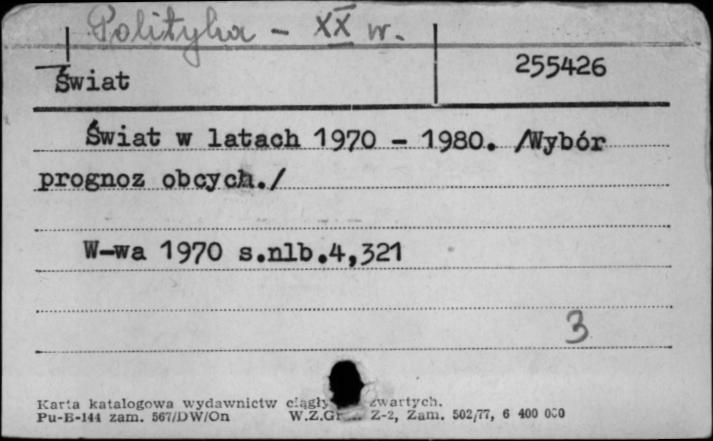 Polityka - XX w.
Świat
255426
Świat w latach 1970 - 1980. /Wybór
prognoz obcych./
W-wa 1970 s.nlb.4,321
3
Karta katalogowa wydawnictw ciągły zwartych.
Pu-B-144 zam. 567/DW/On W.Z.Gr Z-2, Zam. 502/77, 6 400 000